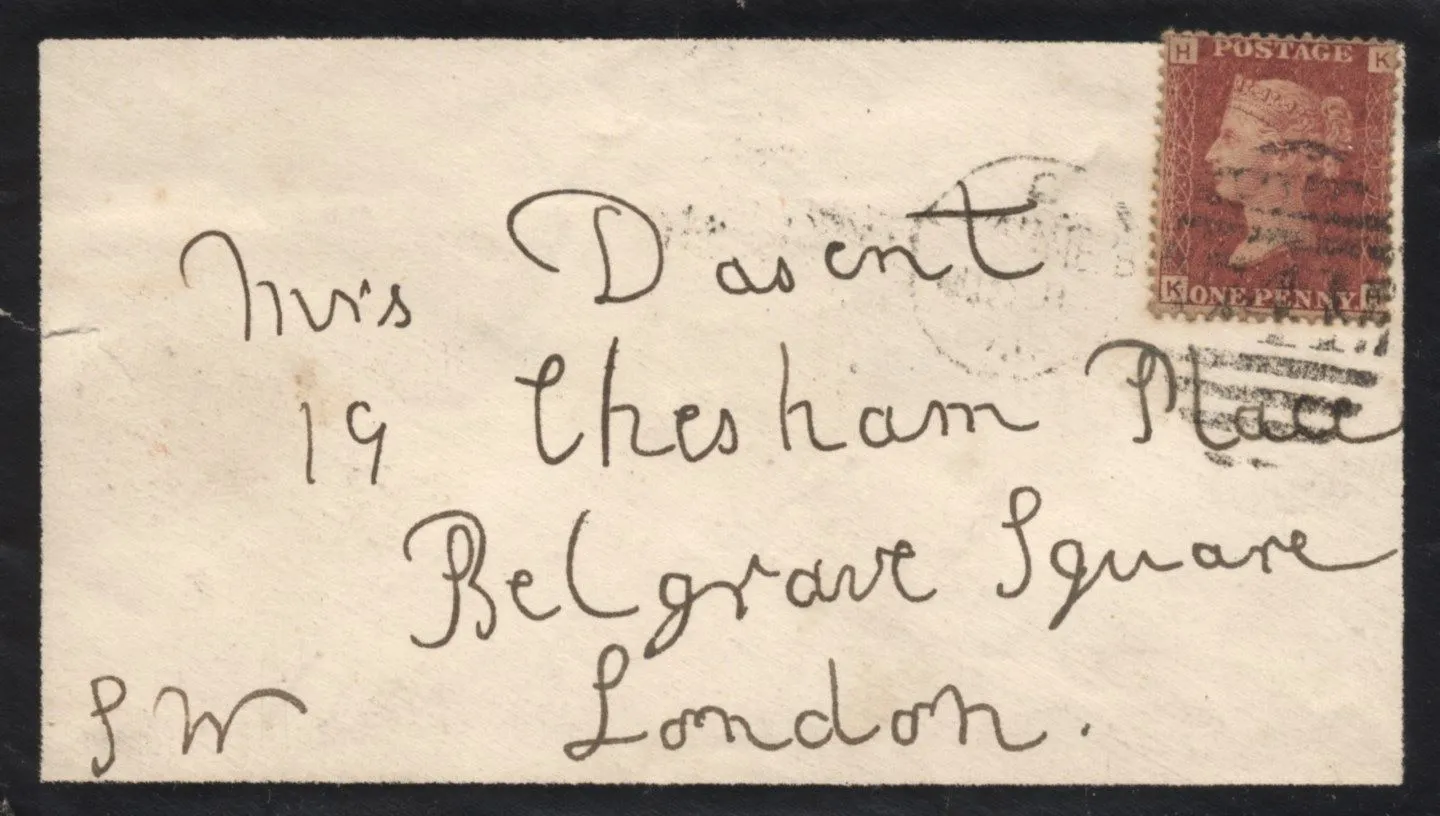 H POSTAGE K
K ONE PENNY H
Mrs Dasent
19 Chesham Place
Belgrave Square
S W London.